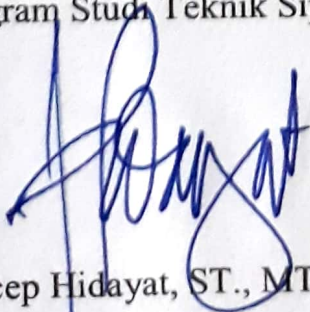 ram Studi Teknik Si
cep Hidayat, ST., MT